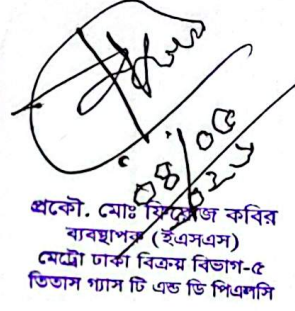 ০৪/০৫
প্রকৌ. মোঃ ফিরোজ কবির
ব্যবস্থাপক (ইএসএস)
মেট্রো ঢাকা বিক্রয় বিভাগ-৫
তিতাস গ্যাস টি এন্ড ডি পিএলসি